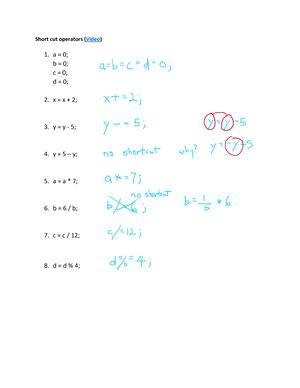 Short cut operators (Video)
1. a = 0;
b = 0;
c = 0;
d = 0;
a=b=c=d=0;
2. x = x + 2;
x+=2;
3. y = y - 5;
y-=5;
y=y-5
4. y = 5 – y;
no shortcut why? y=-y+5
5. a = a * 7;
a*=7;
no shortcut
6. b = 6 / b;
b/=6;
b=1/b*6
7. c = c / 12;
c/=12;
8. d = d % 4;
d%=4;